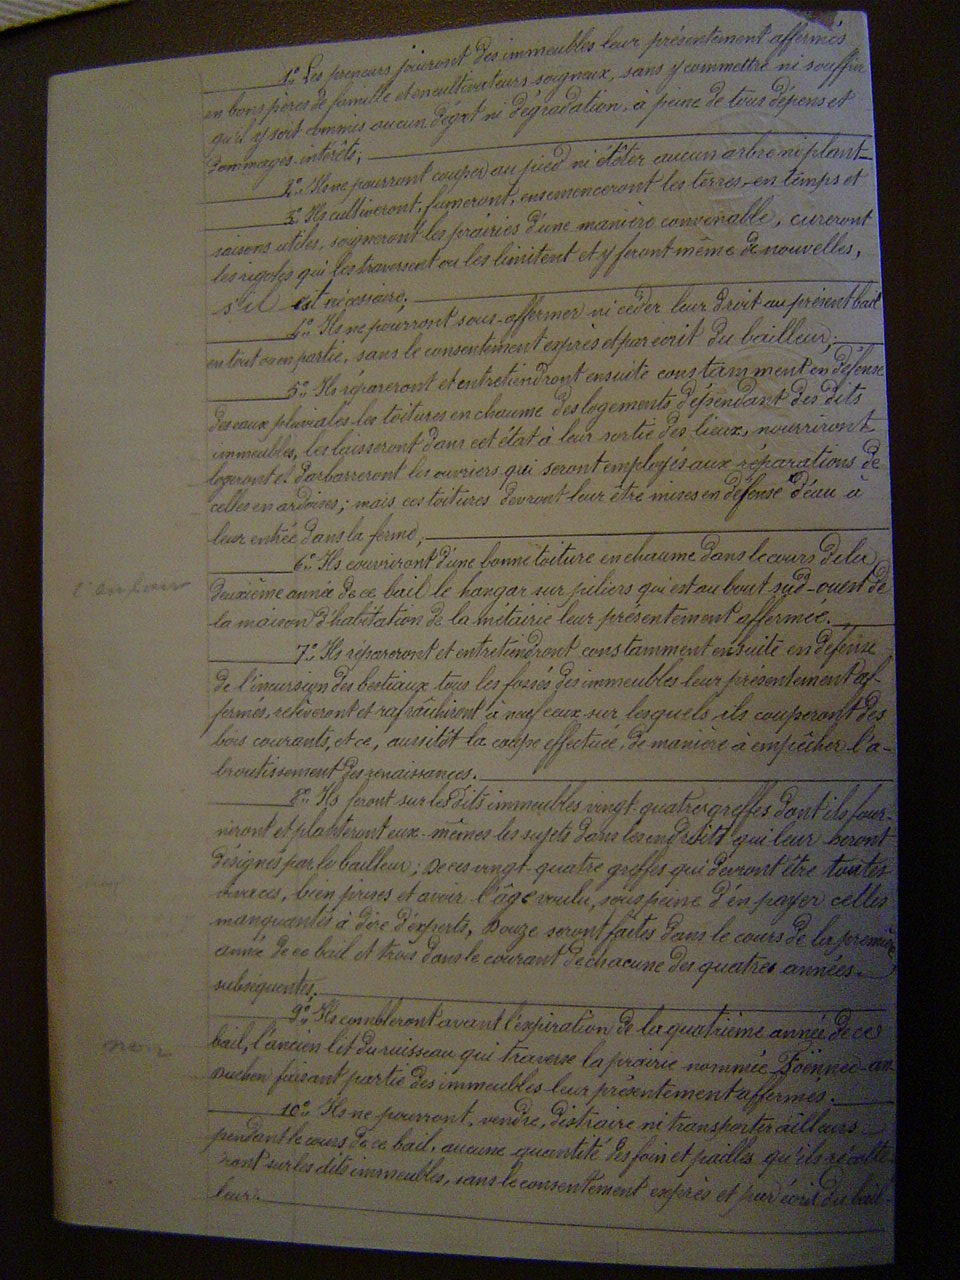 1º Les preneurs jouiront des immeubles leur présentement affermés
en bons pères de famille et en cultivateurs soigneux, sans y commettre ni souffrir
qu'il y soit commis aucun dégât ni dégradation, à peine de tous dépens et
dommages-intérêts;
2º Ils ne pourront couper au pied ni étêter aucun arbre ni plant
3º Ils cultiveront, fumeront, ensemenceront les terres en temps et
saisons utiles, soigneront les prairies d'une manière convenable, cureront
les rigoles qui les traversent ou les limitent et y feront même de nouvelles,
s'il est nécessaire;
4º Ils ne pourront sous-affermer ni céder leur droit au présent bail
en tout ou en partie, sans le consentement exprès et par écrit du bailleur;
5º Ils répareront et entretiendront ensuite constamment en défense
des eaux pluviales les toitures en chaume des logements dépendant des dits
immeubles, les laisseront dans cet état à leur sortie des lieux, nourriront
logeront et darbarreront les ouvriers qui seront employés aux réparations de
celles en ardoises; mais ces toitures devront leur être mises en défense d'eau à
leur entrée dans la ferme;
6º Ils couvriront d'une bonne toiture en chaume dans le cours de la
deuxième année de ce bail le hangar sur piliers qui est au bout sud-ouest de
la maison d'habitation de la métairie leur présentement affermée.
7º Ils répareront et entretiendront constamment ensuite en défense
de l'incursion des bestiaux tous les fossés des immeubles leur présentement af-
fermés, relèveront et rafraîchiront à neuf ceux sur lesquels ils couperont des
bois courants, et ce, aussitôt la coupe effectuée, de manière à empêcher l'a-
broutissement des renaissances.
8º Ils feront sur les dits immeubles vingt-quatre greffes dont ils four-
niront et planteront eux-mêmes les sujets dans les endroits qui leur seront
désignés par le bailleur; De ces vingt-quatre greffes qui devront être toutes
vivaces, bien prises et avoir l'âge voulu, sous peine d'en payer celles
manquantes à dire d'experts, Douze seront faites dans le cours de la première
année de ce bail et trois dans le courant de chacune des quatres années
subséquentes;
9º Ils combleront avant l'expiration de la quatrième année de ce
non
bail, l'ancien lit du ruisseau qui traverse la prairie nommée Foënnec-an
Duchen faisant partie des immeubles leur présentement affermés.
10º Ils ne pourront, vendre, distraire ni transporter ailleurs
pendant le cours de ce bail, aucune quantité des foin et pailles qu'ils récolte-
ront sur les dits immeubles, sans le consentement exprès et par écrit du bail-
leur.